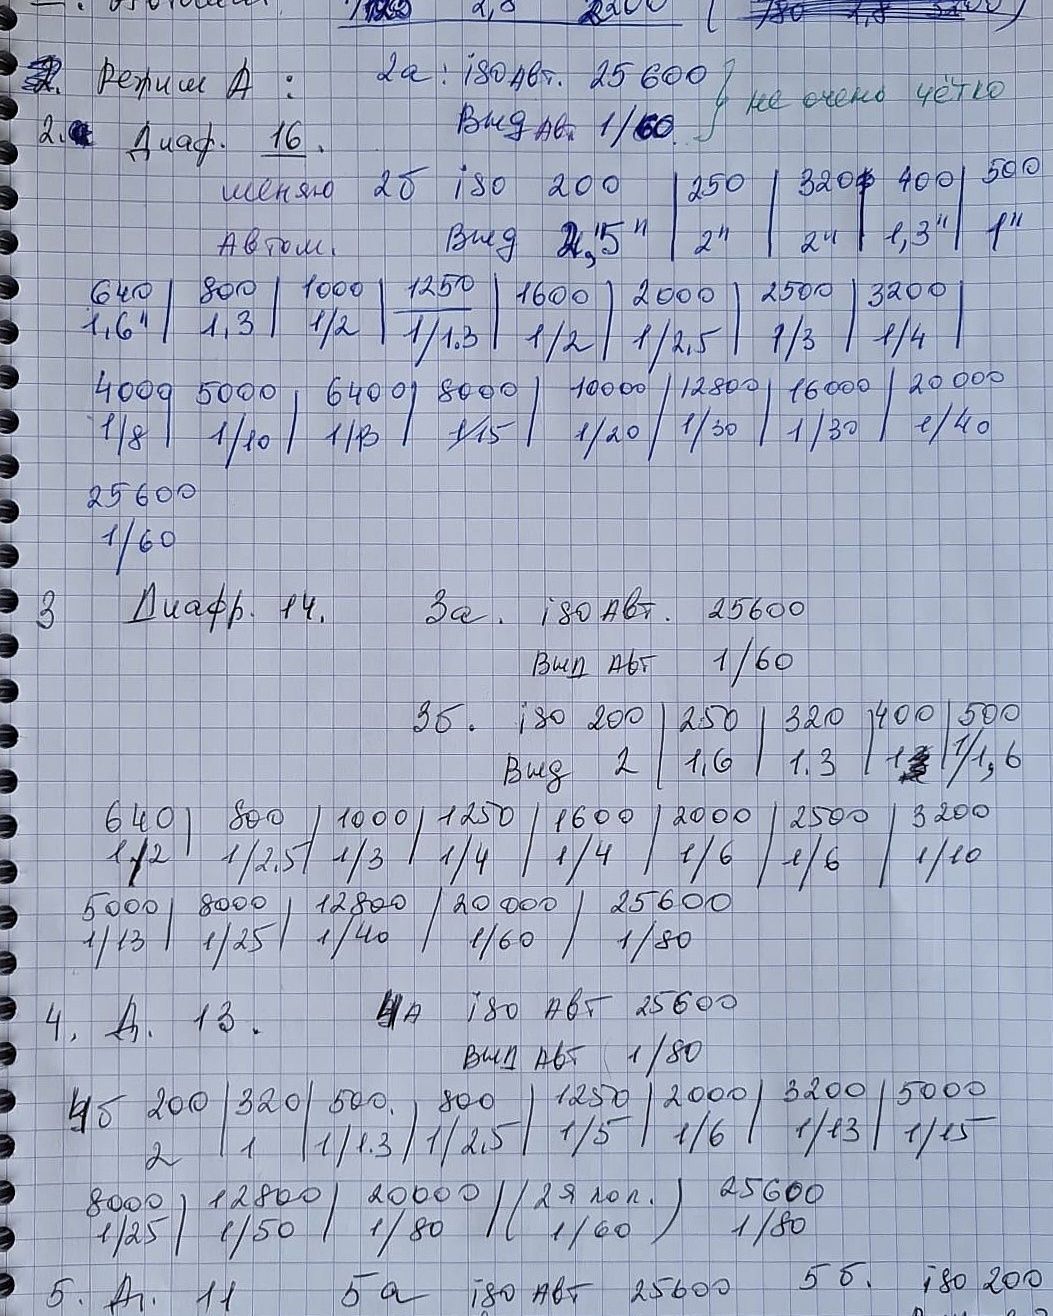 2,8 2200 ( 780 1,8 3200 )
2. Режим А : 2а : iso Авт. 25 600
Выд Авт 1/60. } не очень чётко
2. Диаф. 16.
меняю 2б iso 200 | 250 | 320 | 400 | 500
Автом. Выд 2,5" | 2" | 2" | 1,3" | 1"
640 | 800 | 1000 | 1250 | 1600 | 2000 | 2500 | 3200 |
1,6" | 1,3 | 1/2 | 1/1.3 | 1/2 | 1/2,5 | 1/3 | 1/4 |
4000 | 5000 | 6400 | 8000 | 10000 | 12800 | 16000 | 20 000
1/8 | 1/10 | 1/13 | 1/15 | 1/20 | 1/30 | 1/30 | 1/40
25600
1/60
3 Диафр. 14. 3а. iso Авт. 25600
Выд Авт 1/60
3б. iso 200 | 250 | 320 | 400 | 500
Выд 2 | 1.6 | 1.3 | 1 | 1/1,6
640 | 800 | 1000 | 1250 | 1600 | 2000 | 2500 | 3200
1/2 | 1/2,5 | 1/3 | 1/4 | 1/4 | 1/6 | 1/6 | 1/10
5000 | 8000 | 12800 | 20 000 | 25600
1/13 | 1/25 | 1/40 | 1/60 | 1/80
4. Д. 13. 4А iso Авт 25600
Выд Авт 1/80
4б 200 | 320 | 500. | 800 | 1250 | 2000 | 3200 | 5000
2 | 1 | 1/1.3 | 1/2,5 | 1/5 | 1/6 | 1/13 | 1/15
8000 | 12800 | 20000 | (2я поп.) 25600
1/25 | 1/50 | 1/80 | ( 1/60 ) 1/80
5. Д. 11 5а iso Авт 25600 5б. iso 200